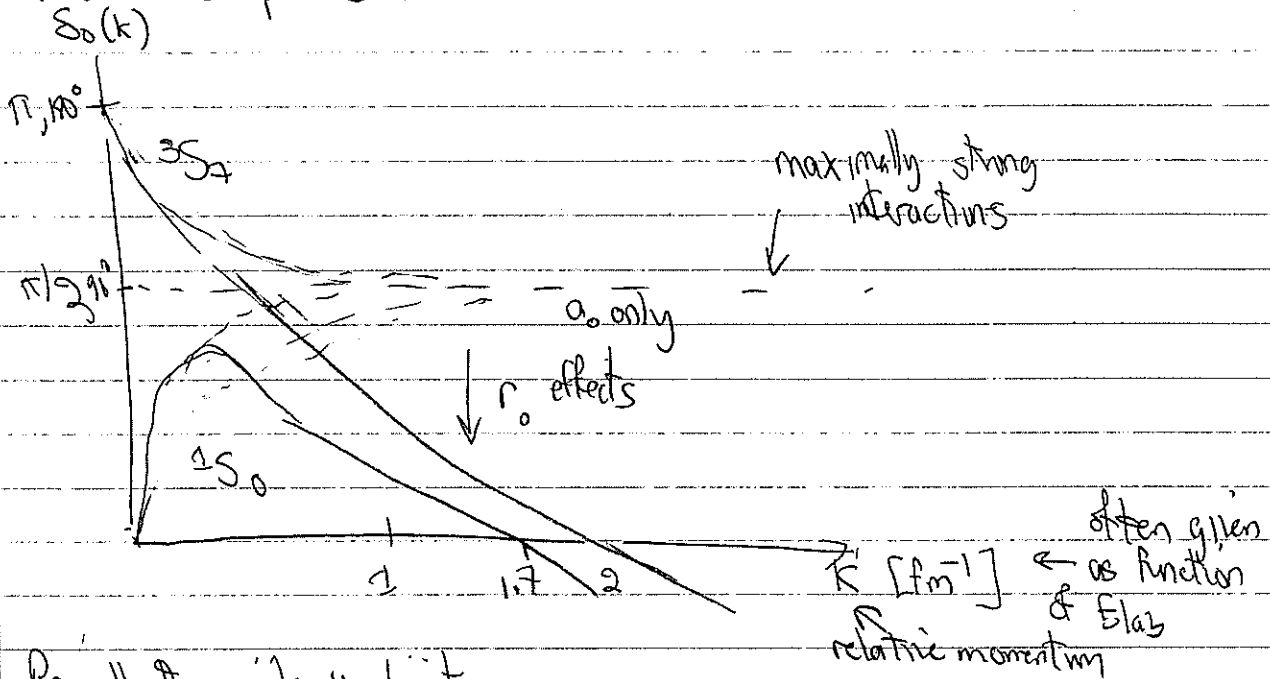 δ₀(k)
π, 180°
³S₁
maximally strong
interactions
π/2 90°
a₀ only
r₀ effects
¹S₀
1
1.7
2
k [fm⁻¹]
← often given
as function
of Elab
relative momentum